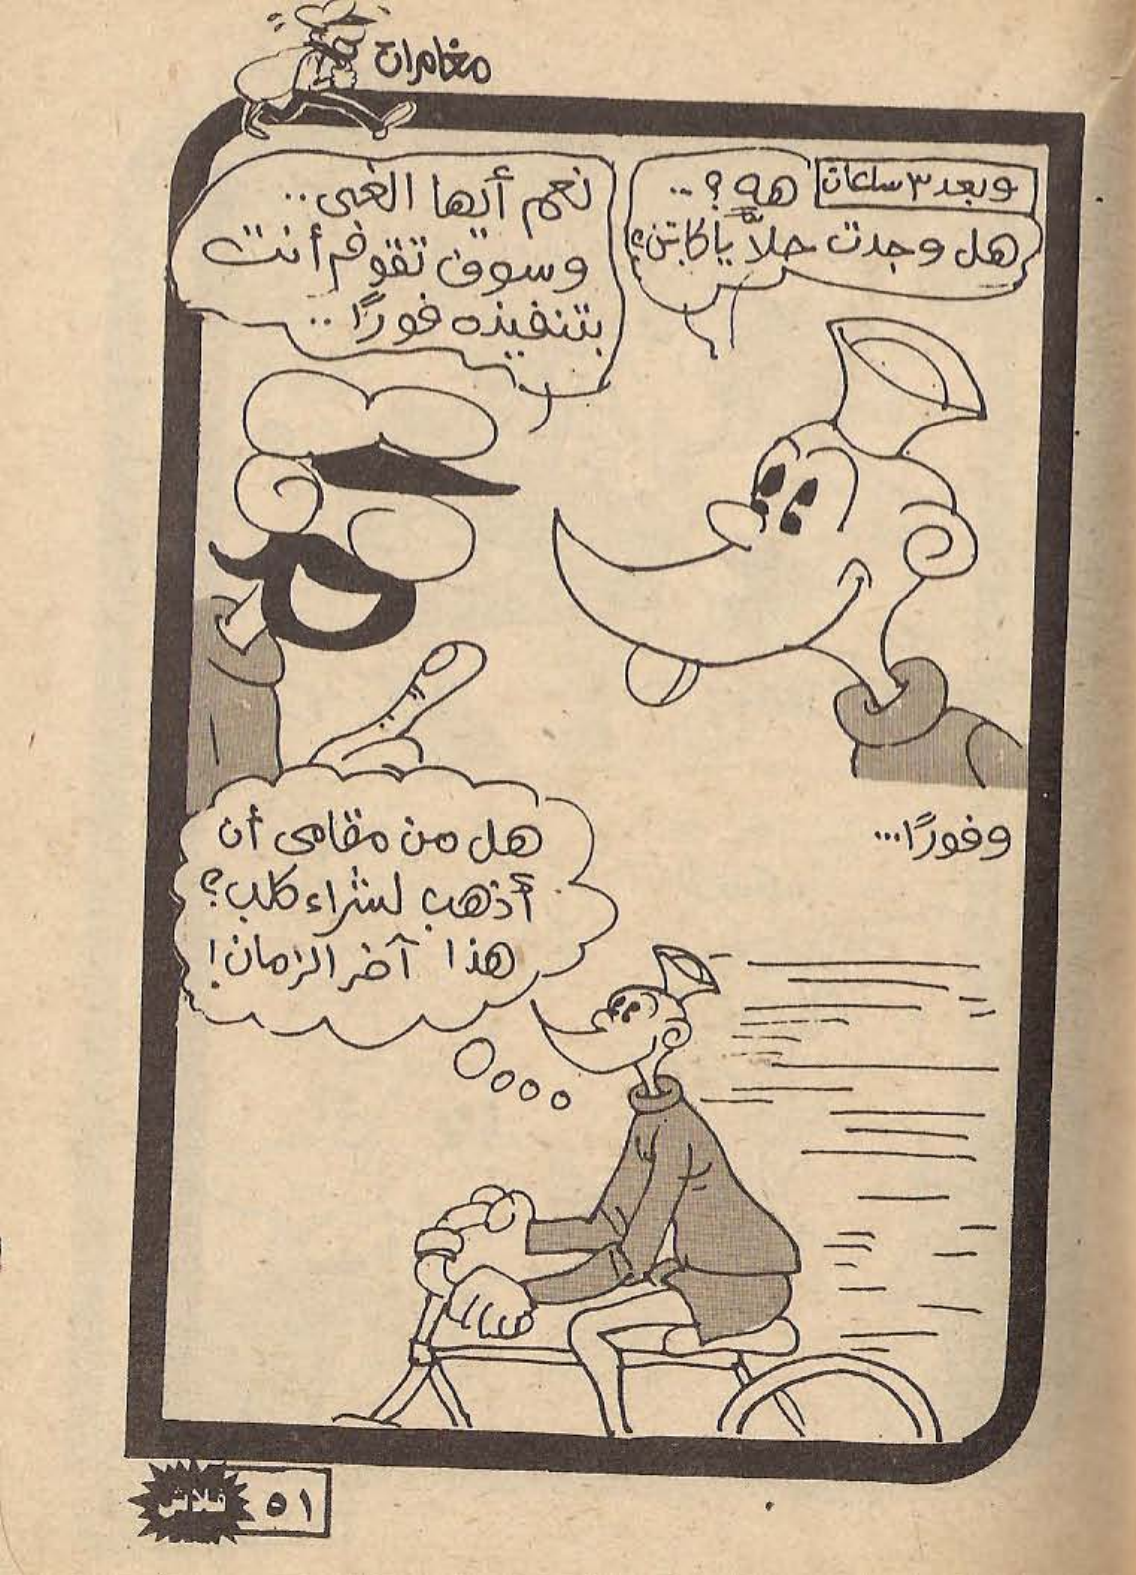 مغامرات
وبعد ٣ ساعات
هه؟..
هل وجدت حلاًّ يا كابتن؟
نعم أيها الغبى..
وسوف تقوم أنت
بتنفيذه فورًا..
وفورًا...
هل من مقامى أن
أذهب لشراء كلب؟
هذا آخر الزمان!
٥١
فلاش